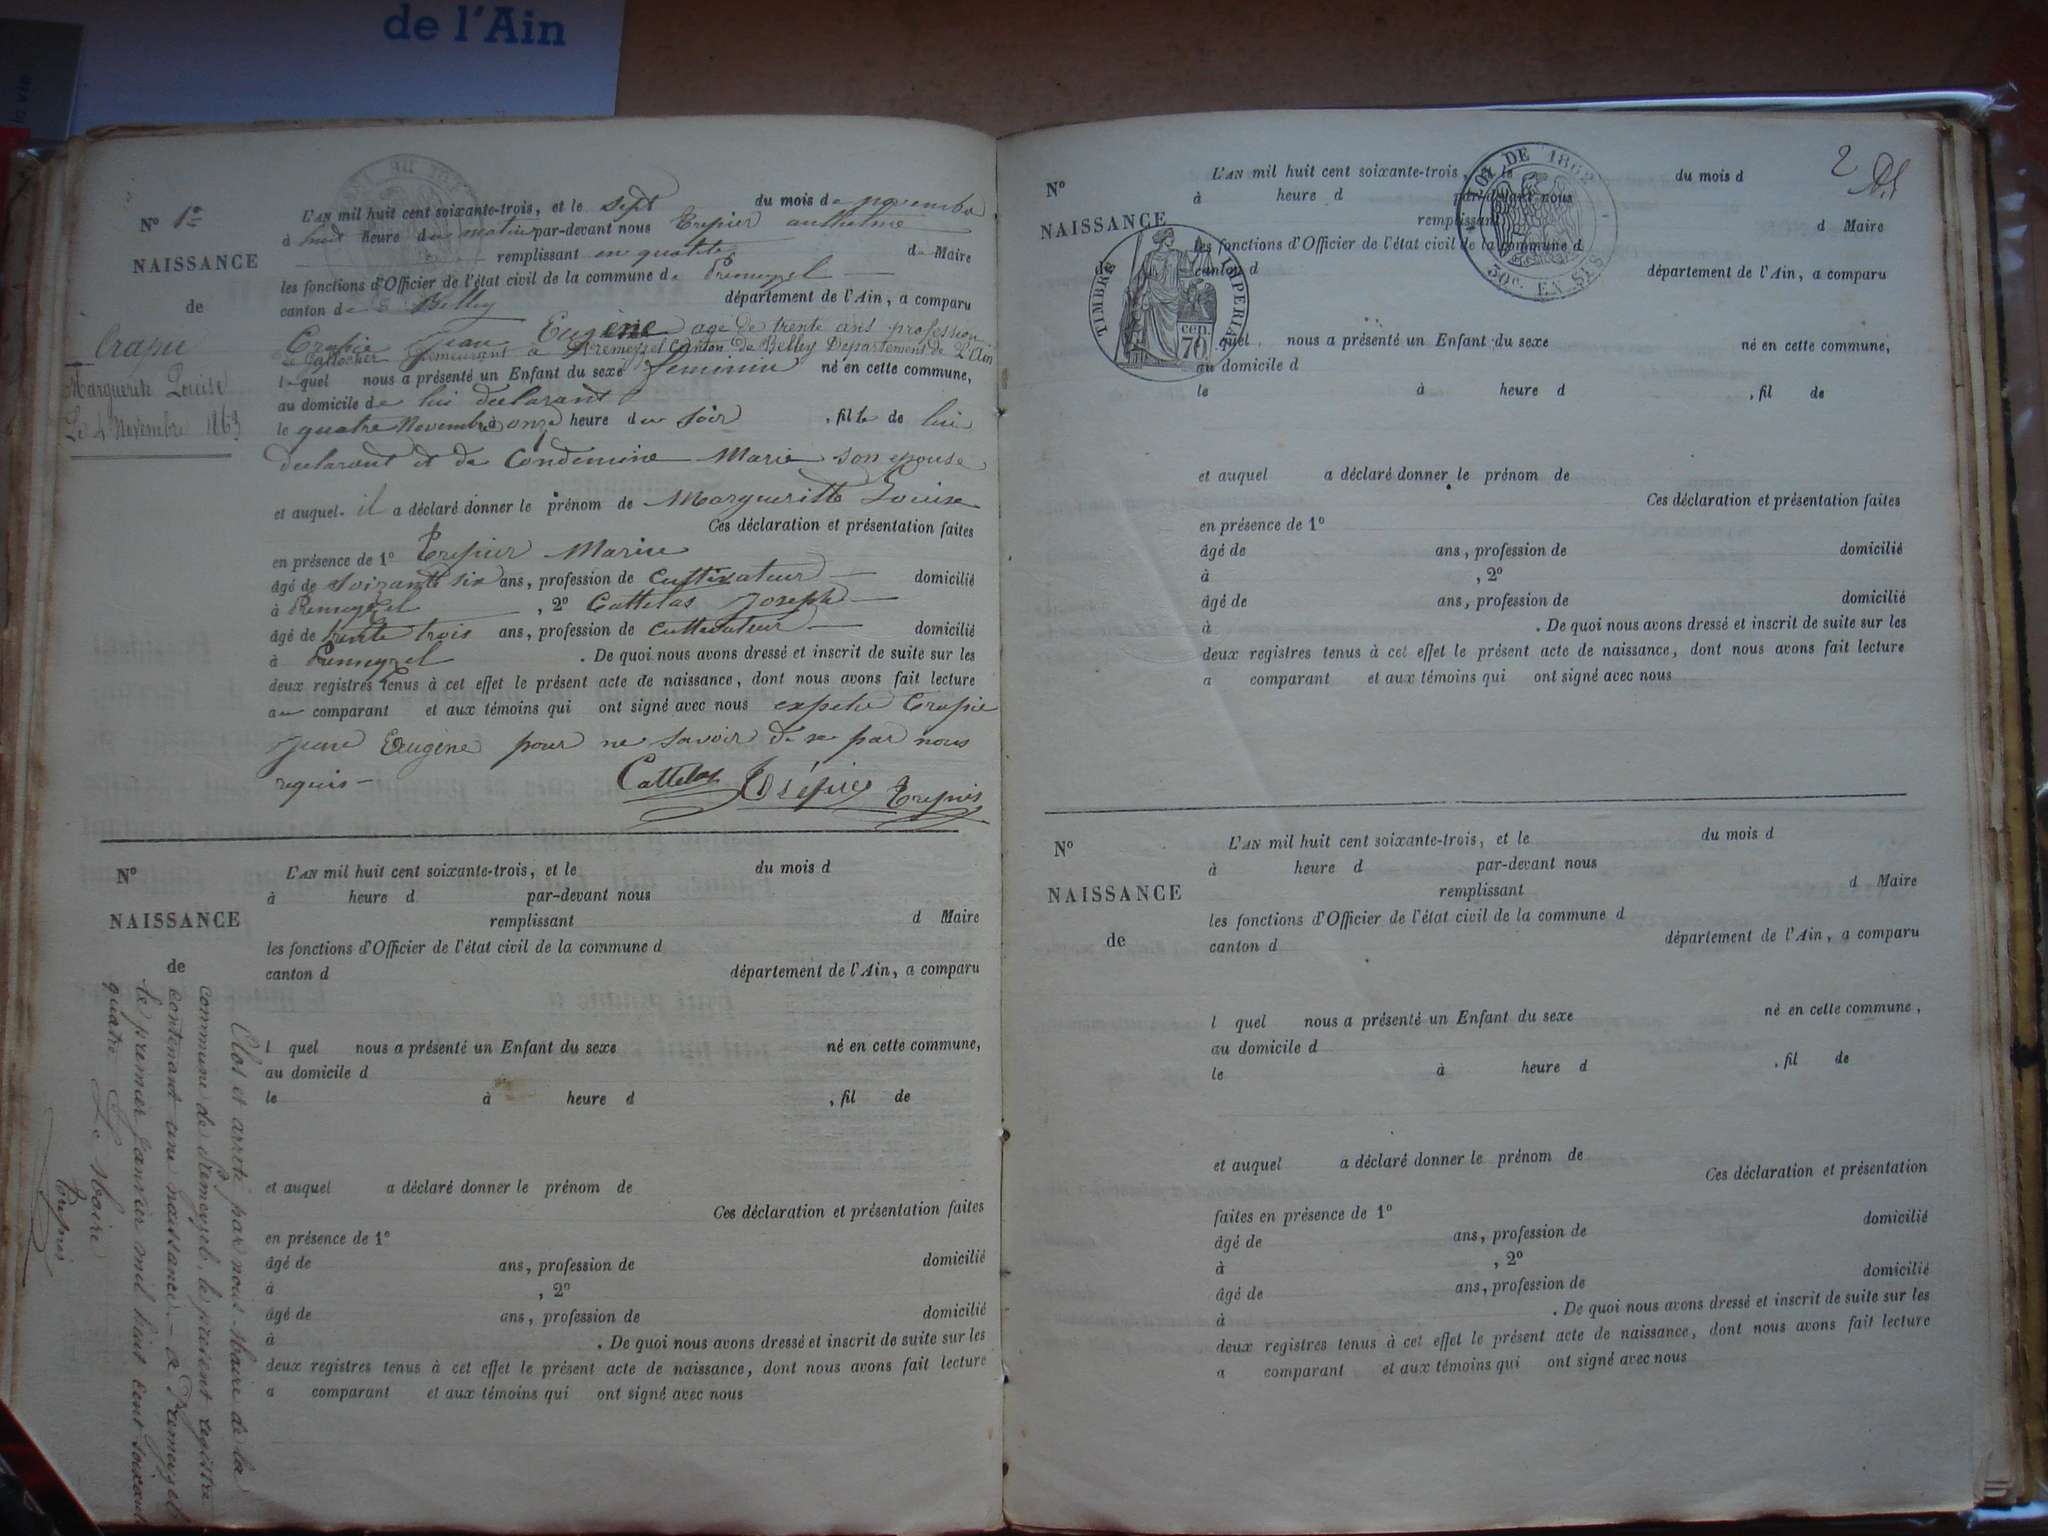 de l'Ain
la vie
N° 1er
NAISSANCE
de
Crapie
Marguerite Louise
Le 4 Novembre 1863
L'AN mil huit cent soixante-trois, et le sept du mois de novembre
à huit heure du matin par-devant nous Trepier anthelme
remplissant en qualité de Maire
les fonctions d'Officier de l'état civil de la commune de Premeyzel
canton de Belley département de l'Ain, a comparu
Crapie jean Eugène age de trente ans profession
de demeurant à Premeyzel Canton de Belley Departement de L'Ain
lequel nous a présenté un Enfant du sexe feminin né en cette commune,
au domicile de lui declarant
le quatre Novembre à onze heure du soir , fille de lui
declarant et de Condemine Marie son epouse
et auquel il a déclaré donner le prénom de Margueritte Louise
Ces déclaration et présentation faites
en présence de 1° Trepier Marin
âgé de soizante six ans, profession de Cultivateur domicilié
à Premeyzel , 2° Cattelas Joseph
âgé de trente trois ans, profession de cultivateur domicilié
à Premeyzel . De quoi nous avons dressé et inscrit de suite sur les
deux registres tenus à cet effet le présent acte de naissance, dont nous avons fait lecture
au comparant et aux témoins qui ont signé avec nous Crapie
jean Eugène pour ne savoir de ce par nous
requis
Cattelas Trépier Trepier
N°
NAISSANCE
de
L'AN mil huit cent soixante-trois, et le du mois d
à heure d par-devant nous
remplissant d Maire
les fonctions d'Officier de l'état civil de la commune d
canton d département de l'Ain, a comparu
l quel nous a présenté un Enfant du sexe né en cette commune,
au domicile d
le à heure d , fil de
et auquel a déclaré donner le prénom de
Ces déclaration et présentation faites
en présence de 1°
âgé de ans, profession de domicilié
à , 2°
âgé de ans, profession de domicilié
à . De quoi nous avons dressé et inscrit de suite sur les
deux registres tenus à cet effet le présent acte de naissance, dont nous avons fait lecture
a comparant et aux témoins qui ont signé avec nous
Clos et arreté par nous Maire de la
commune de Prémeyzel, le présent registre
contenant une naissance. à Prémeyzel
le premier janvier mil huit cent soixante
quatre Le Maire
Trepier
2
N°
NAISSANCE
L'AN mil huit cent soixante-trois, et le du mois d
à heure d par-devant nous
remplissant d Maire
les fonctions d'Officier de l'état civil de la commune d
canton d département de l'Ain, a comparu
TIMBRE IMPERIAL
cen. 70
LOI DE 1862
50c. EN SUS
l quel nous a présenté un Enfant du sexe né en cette commune,
au domicile d
le à heure d , fil de
et auquel a déclaré donner le prénom de
Ces déclaration et présentation faites
en présence de 1°
âgé de ans, profession de domicilié
à , 2°
âgé de ans, profession de domicilié
à . De quoi nous avons dressé et inscrit de suite sur les
deux registres tenus à cet effet le présent acte de naissance, dont nous avons fait lecture
a comparant et aux témoins qui ont signé avec nous
N°
NAISSANCE
de
L'AN mil huit cent soixante-trois, et le du mois d
à heure d par-devant nous
remplissant d Maire
les fonctions d'Officier de l'état civil de la commune d
canton d département de l'Ain, a comparu
l quel nous a présenté un Enfant du sexe né en cette commune,
au domicile d
le à heure d , fil de
et auquel a déclaré donner le prénom de
Ces déclaration et présentation
faites en présence de 1°
âgé de ans, profession de domicilié
à , 2°
âgé de ans, profession de domicilié
à . De quoi nous avons dressé et inscrit de suite sur les
deux registres tenus à cet effet le présent acte de naissance, dont nous avons fait lecture
a comparant et aux témoins qui ont signé avec nous